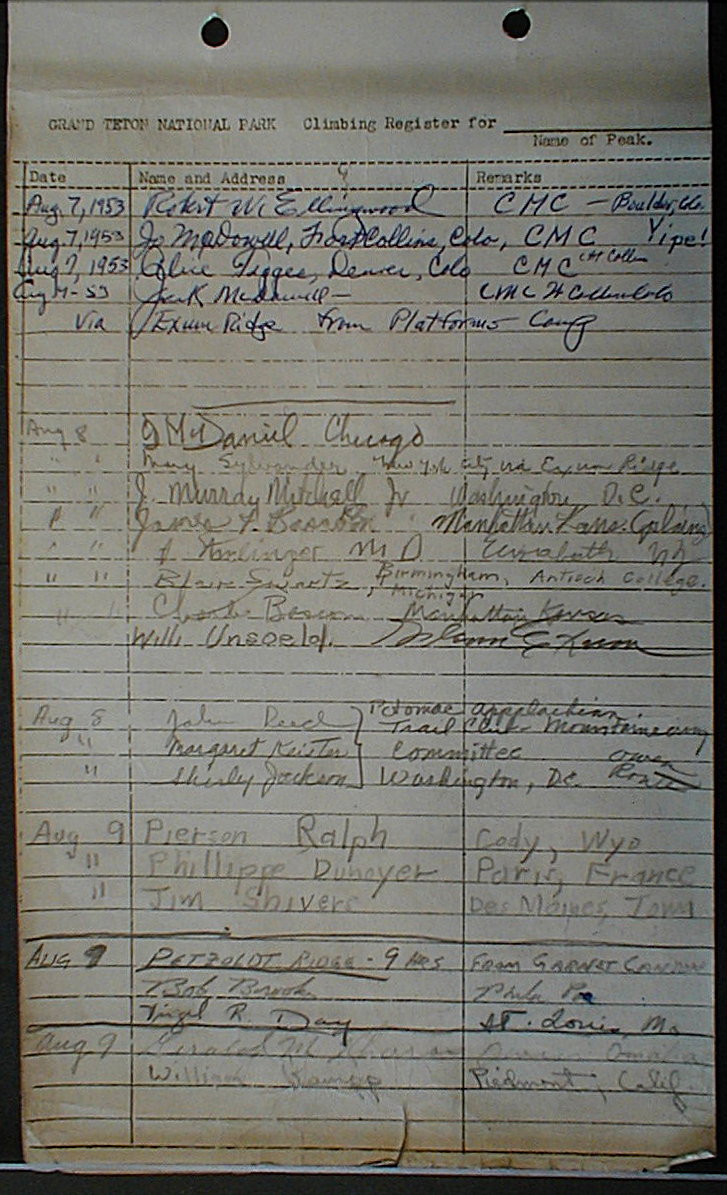 GRAND TETON NATIONAL PARK Climbing Register for
Name of Peak.
Date Name and Address Remarks
Aug. 7, 1953 Robert W. Ellingwood CMC - Boulder, Colo.
Aug 7, 1953 Jo McDowell, Fort Collins, Colo, CMC Yipe!
Aug 7, 1953 Figges, Denver, Colo CMC
Aug 7-53 Jack McDowell - CMC Ft Collins Colo
Via Exum Ridge from Platforms Camp
Aug 8 McDaniel Chicago
" " Mary Sylvander, New York City via Exum Ridge
" " J. Murray Mitchell Jr Washington, D.C.
" " James F. Manhattan Kans.
" " M D Elizabeth NJ
" " Blair Swartz, Birmingham, Michigan, Antioch College.
" " Charles Bascom Manhattan Kansas
Willi Unsoeld. Glenn Exum
Aug 8 John Reed Potomac Appalachian
Trail Club Mountaineering
" Margaret Keister Committee Owen
" Shirly Jackson Washington, DC. Route
Aug 9 Pierson Ralph Cody, Wyo
" Phillippe Dunoyer Paris, France
" Jim Shivers Des Moines, Iowa
AUG 9 PETZOLDT RIDGE - 9 HRS FROM GARNET CANYON
Bob Phila Pa
Virgil R. Day St. Louis, Mo
Aug 9 Omaha
William Piedmont, Calif